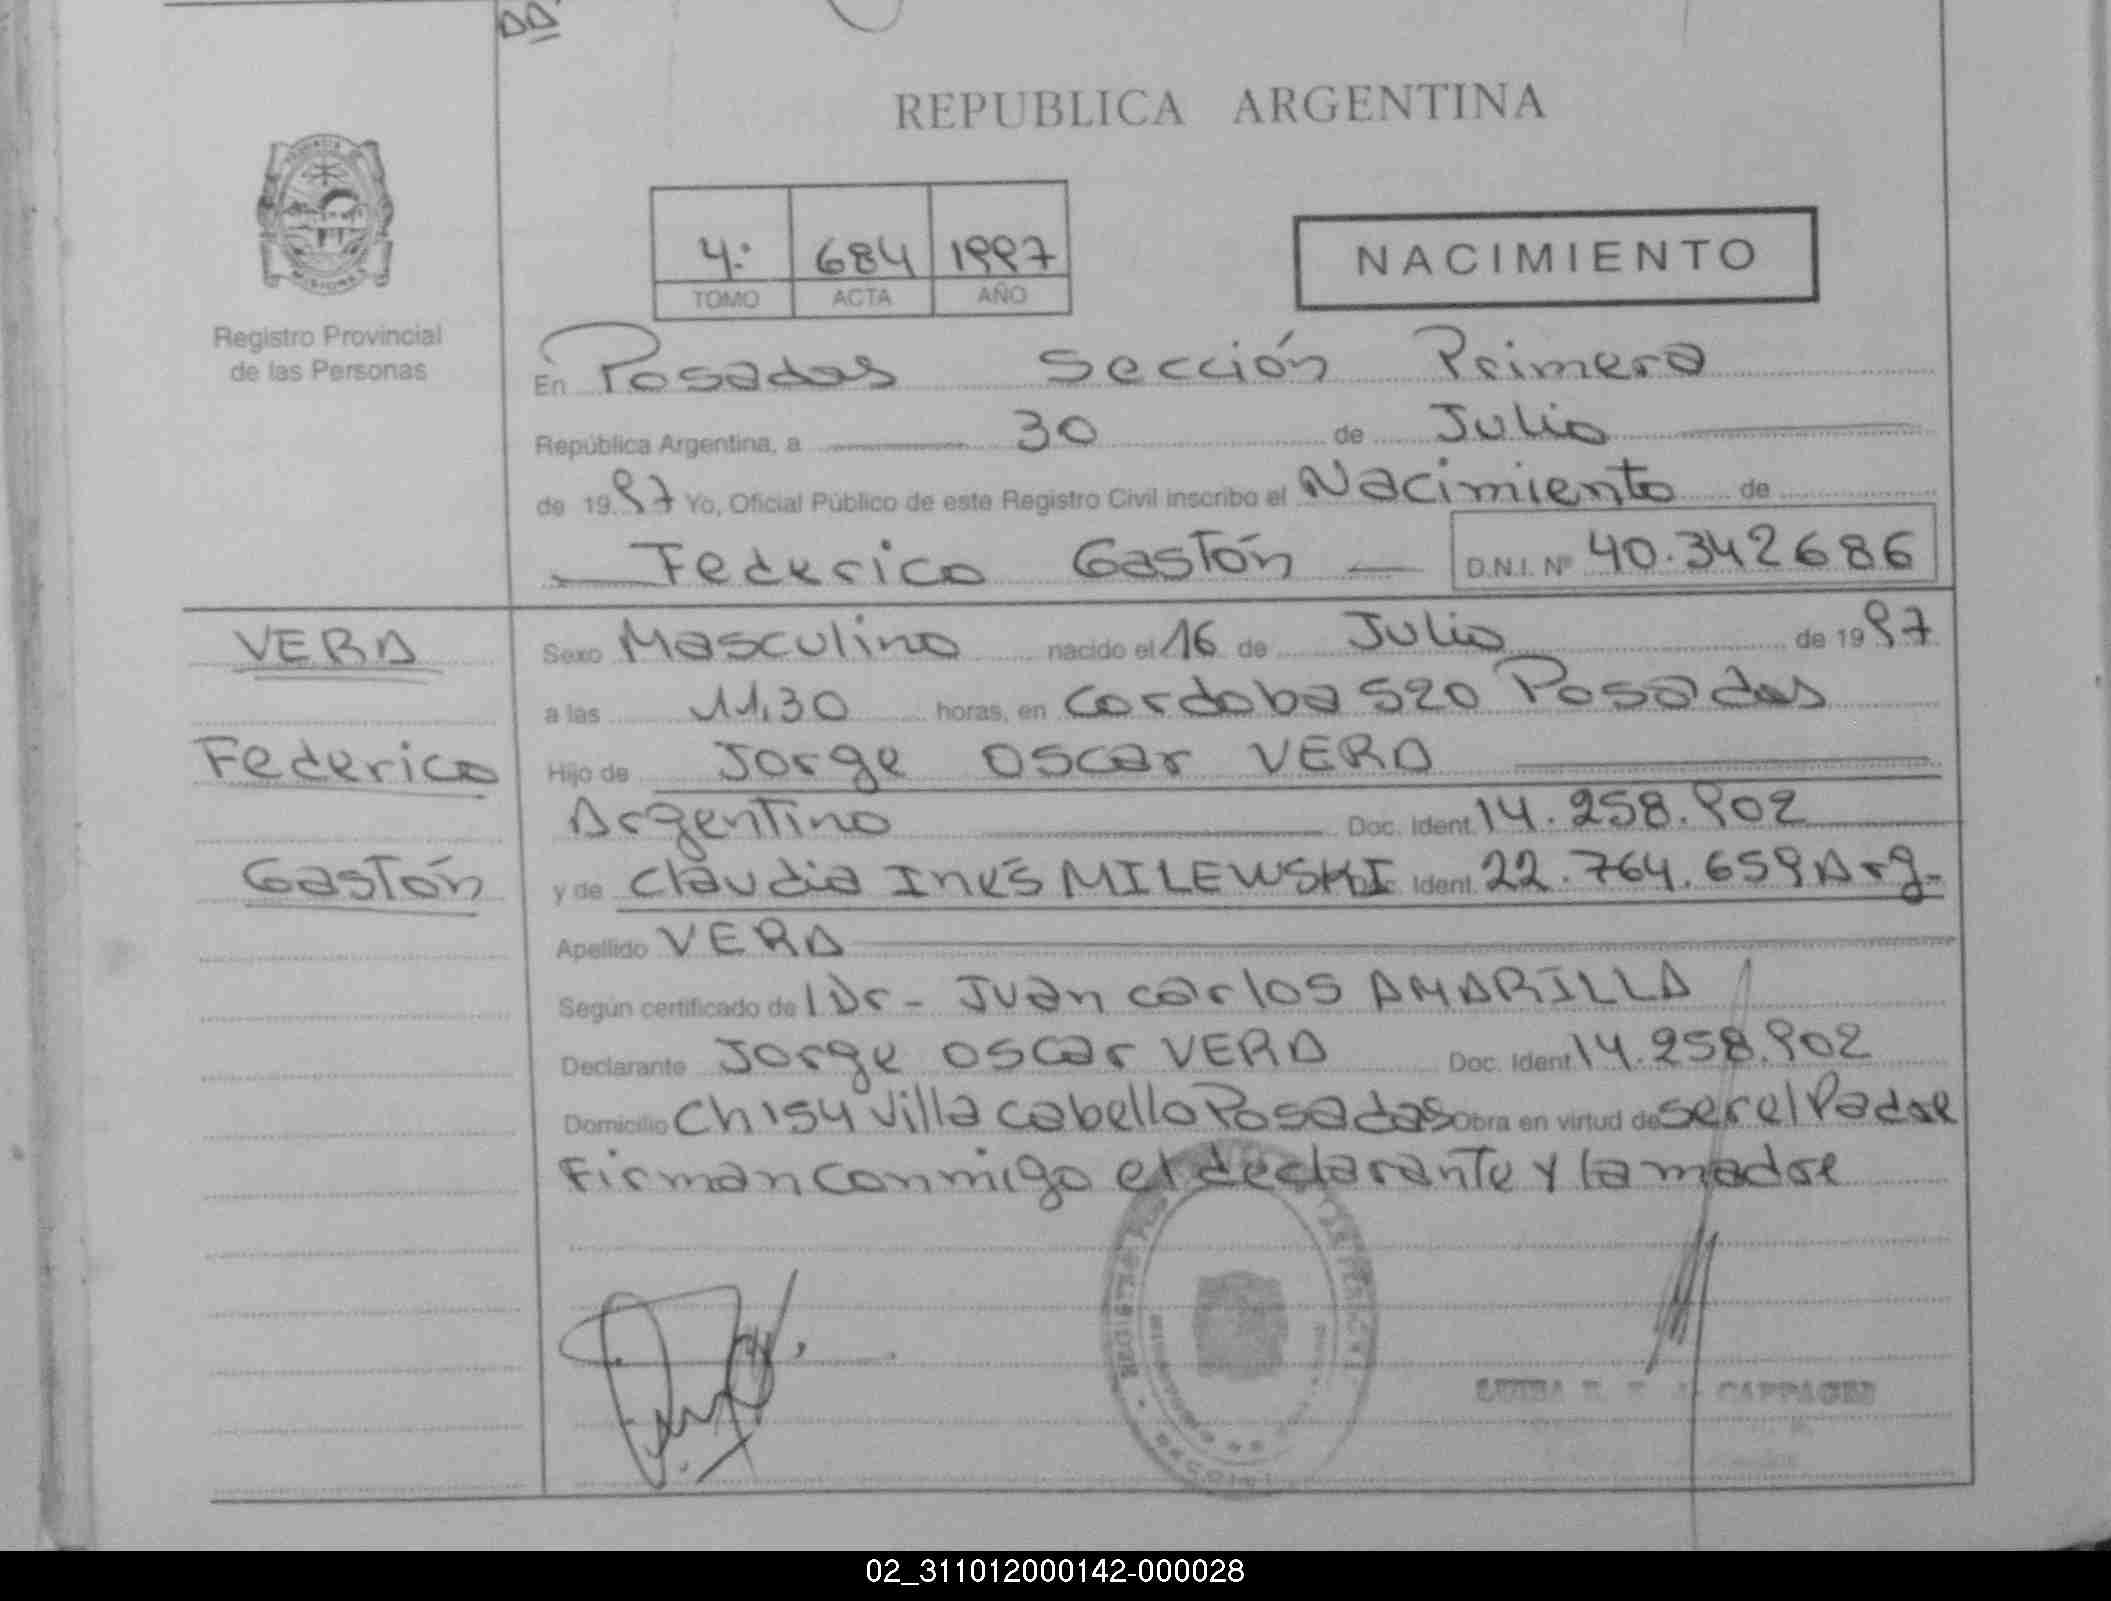 DD
REPUBLICA ARGENTINA
4: 684 1997
TOMO ACTA AÑO
NACIMIENTO
Registro Provincial
de las Personas
En Posadas Sección Primera
República Argentina, a 30 de Julio
de 1997 Yo, Oficial Público de este Registro Civil inscribo el Nacimiento de
Federico Gastón D.N.I. Nº 40.342686
VERA
Federico
Gastón
Sexo Masculino nacido el 16 de Julio de 1997
a las 11,30 horas, en Cordoba 520 Posadas
Hijo de Jorge Oscar VERA
Argentino Doc. Ident. 14.258.902
y de Claudia Inés MILEWSKI Ident. 22.764.659 Arg.
Apellido VERA
Según certificado de l Dr - Juan Carlos AMARILLA
Declarante Jorge Oscar VERA Doc. Ident 14.258.902
Domicilio Ch 154 Villa Cabello Posadas Obra en virtud de ser el Padre
Firman conmigo el declarante y la madre
02_311012000142-000028